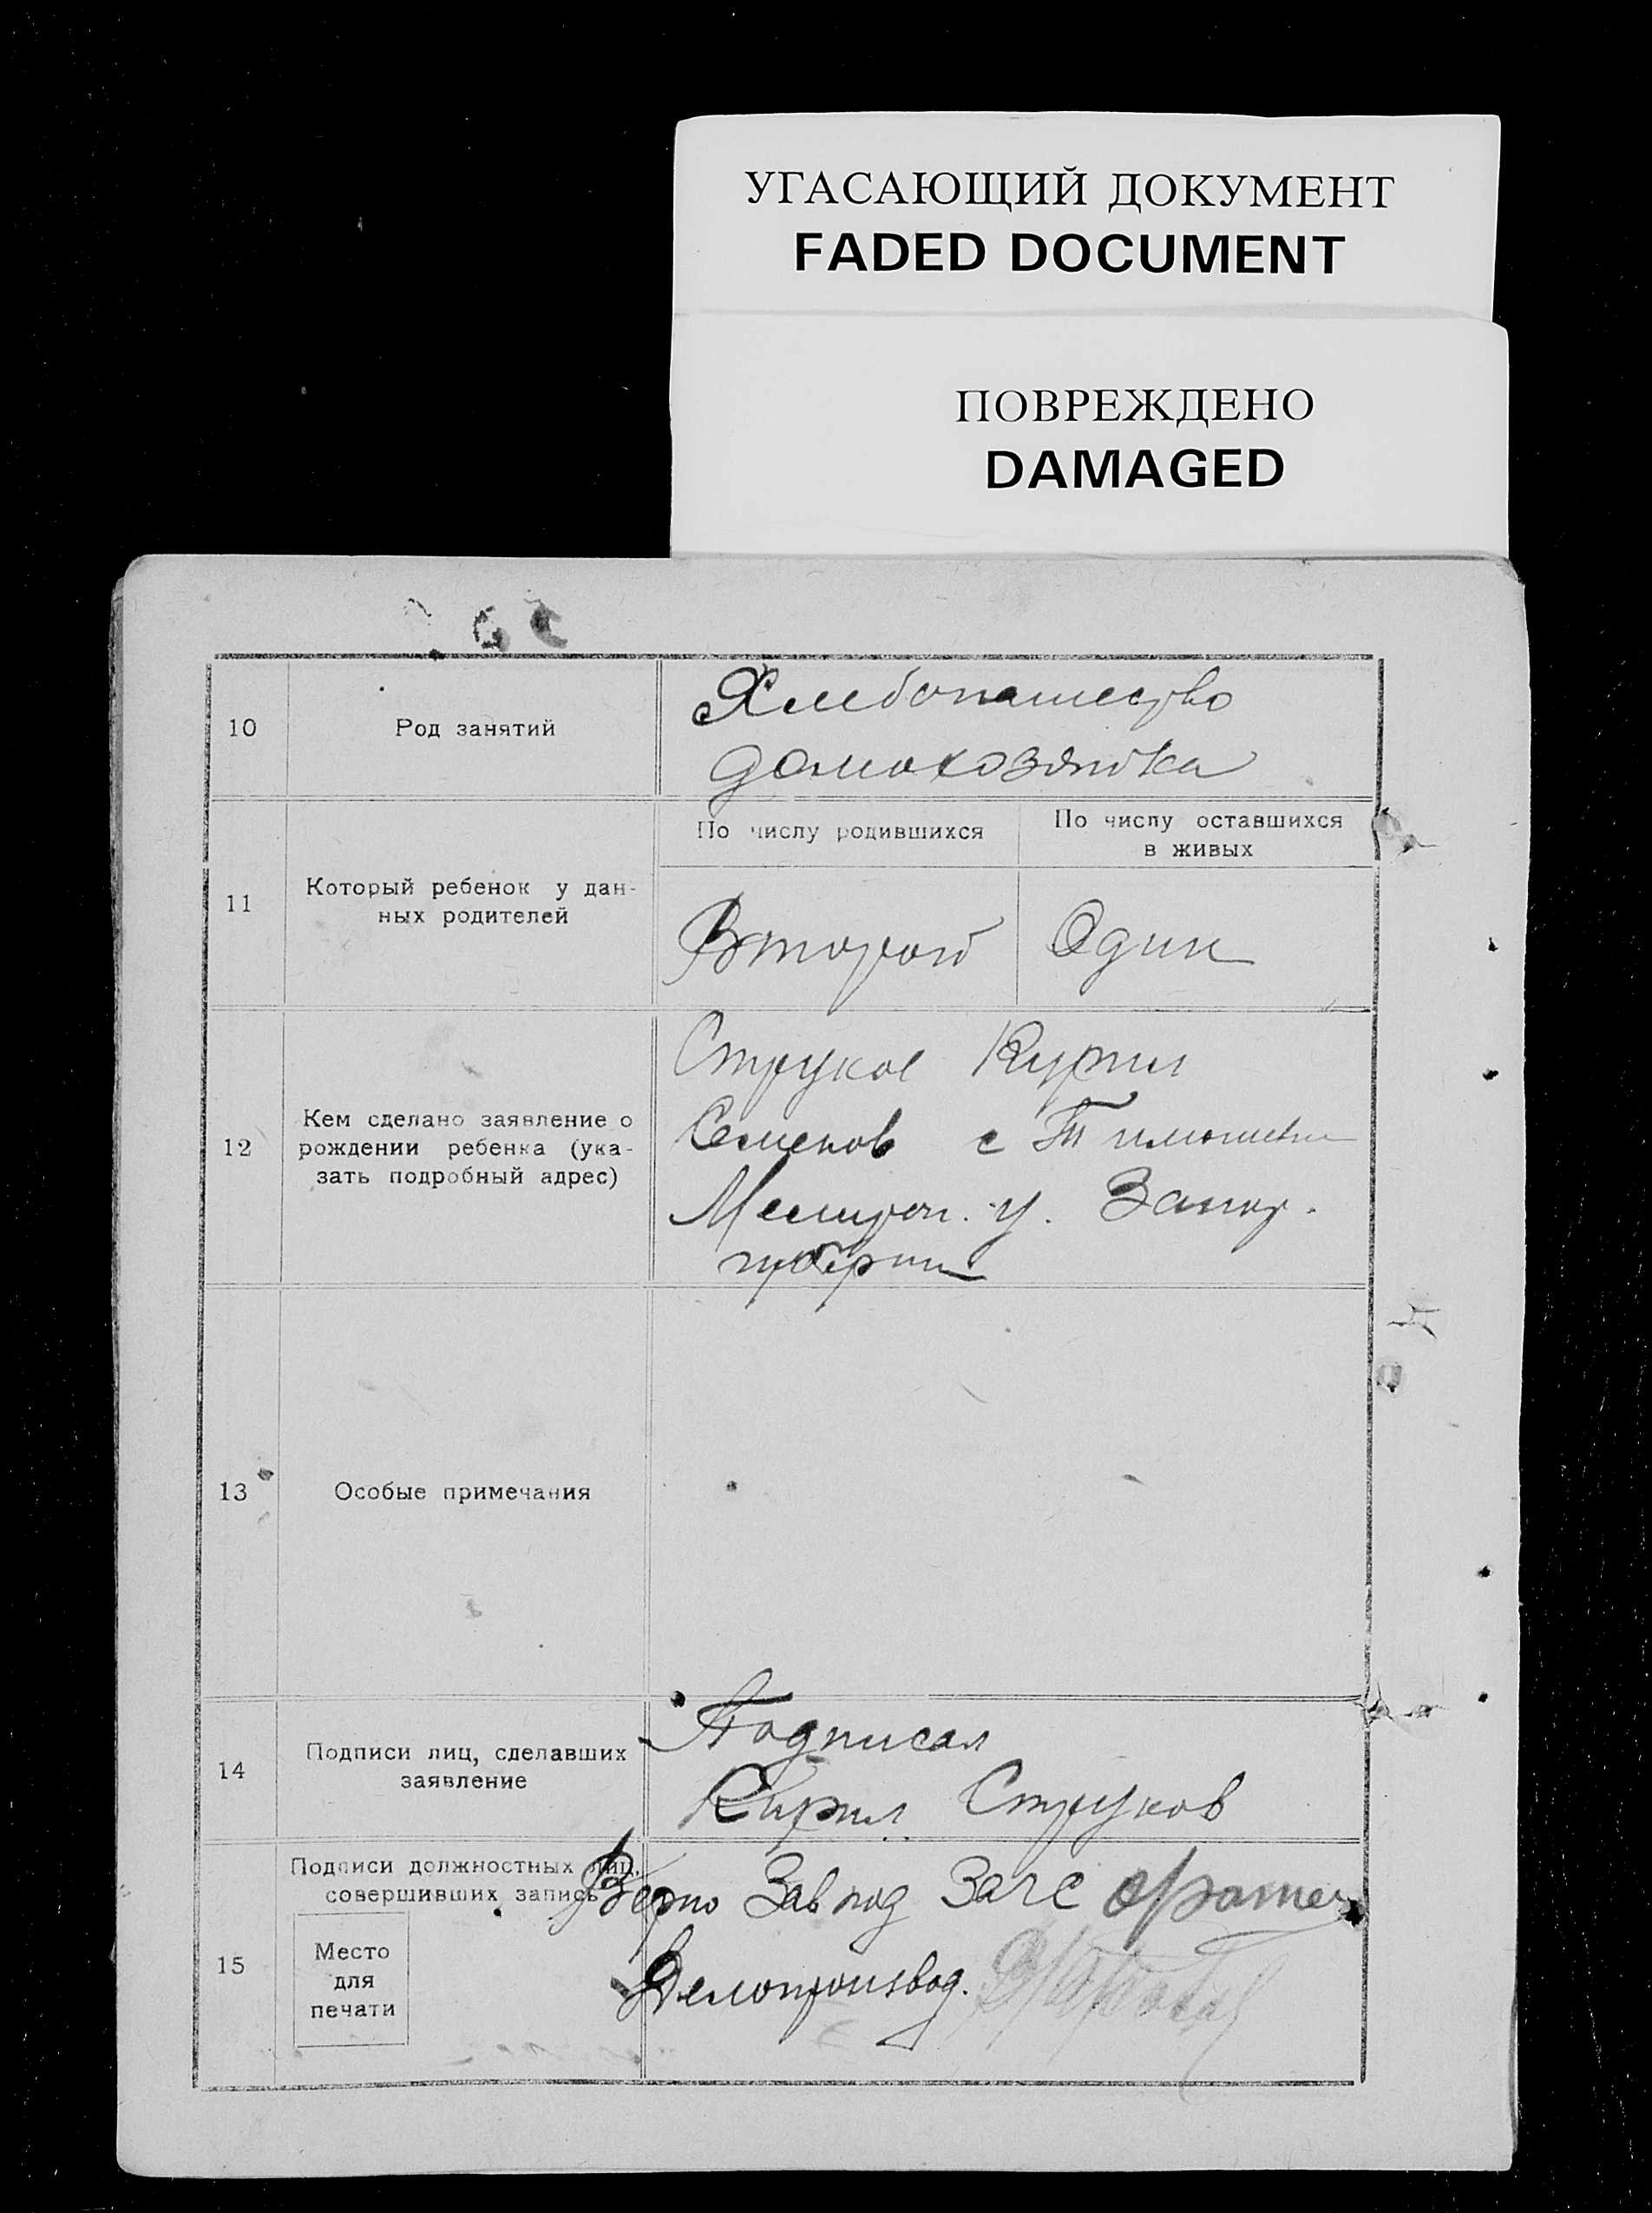 УГАСАЮЩИЙ ДОКУМЕНТ
FADED DOCUMENT
ПОВРЕЖДЕНО
DAMAGED
10
Род занятий
Хлебопашество
домохозяйка
11
Который ребенок у дан-
ных родителей
По числу родившихся
По числу оставшихся
в живых
Второй
Один
12
Кем сделано заявление о
рождении ребенка (ука-
зать подробный адрес)
Струков Кирил
Семенов с Тимошевки
Мелитоп. у. Запор.
губернии
13
Особые примечания
14
Подписи лиц, сделавших
заявление
Подписал
Кирил Струков
15
Подписи должностных лиц,
совершивших запись
Место
для
печати
Верно Зав под Загс
Делопроизвод.